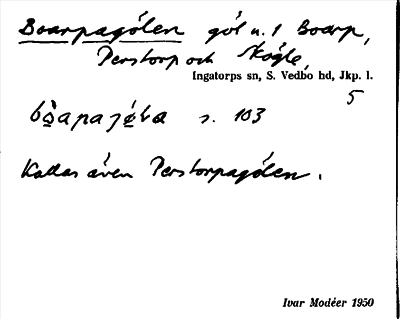 Boarpagölen göl u. 1 Boarp,
Perstorp och Skögle,
Ingatorps sn, S. Vedbo hd, Jkp. l.
5
s. 103
Kallas även Perstorpagölen.
Ivar Modéer 1950